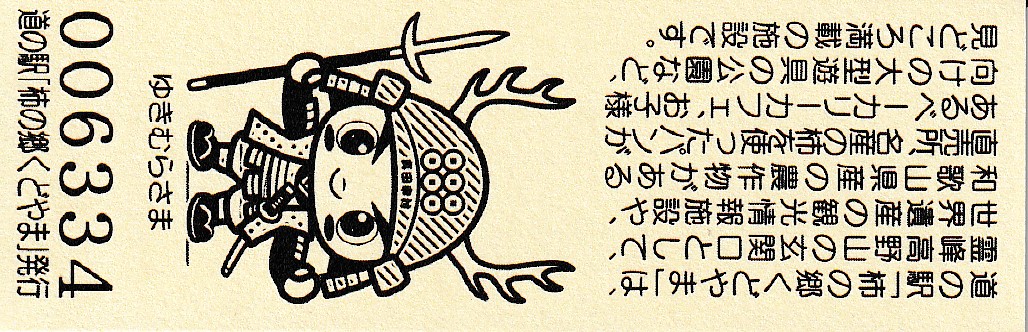 道の駅「柿の郷くどやま」は、
霊峰高野山の玄関口として、
世界遺産の観光情報施設や、
和歌山県産の農作物がある
直売所、名産の柿を使ったパンが
あるベーカリーカフェ、お子様
向けの大型遊具の公園など、
見どころ満載の施設です。
真田幸村
ゆきむらさま
006334
道の駅「柿の郷くどやま」発行